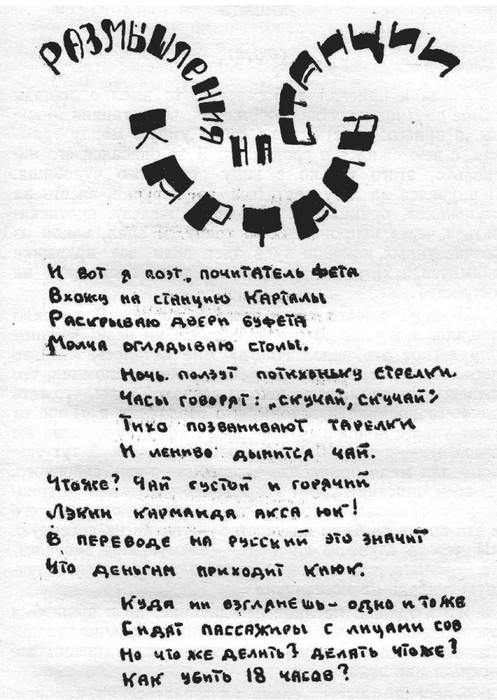 РАЗМЫШЛЕНИЯ
НА
СТАНЦИИ
КАРТАЛЫ
И вот я поэт, почитатель Фета
Вхожу на станцию Карталы
Раскрываю двери буфета
Молча оглядываю столы.
Ночь. Ползут потихоньку стрелки.
Часы говорят: „Скучай, скучай“
Тихо позванивают тарелки
И лениво дымится чай.
Чтоже? Чай густой и горячий
Лэкин карманда акса юк!
В переводе на русский это значит
Что деньгам приходит каюк.
Куда ни взглянешь – одно и тоже
Сидят пассажиры с лицами сов
Но что же делить? Делать чтоже?
Как убить 18 часов?